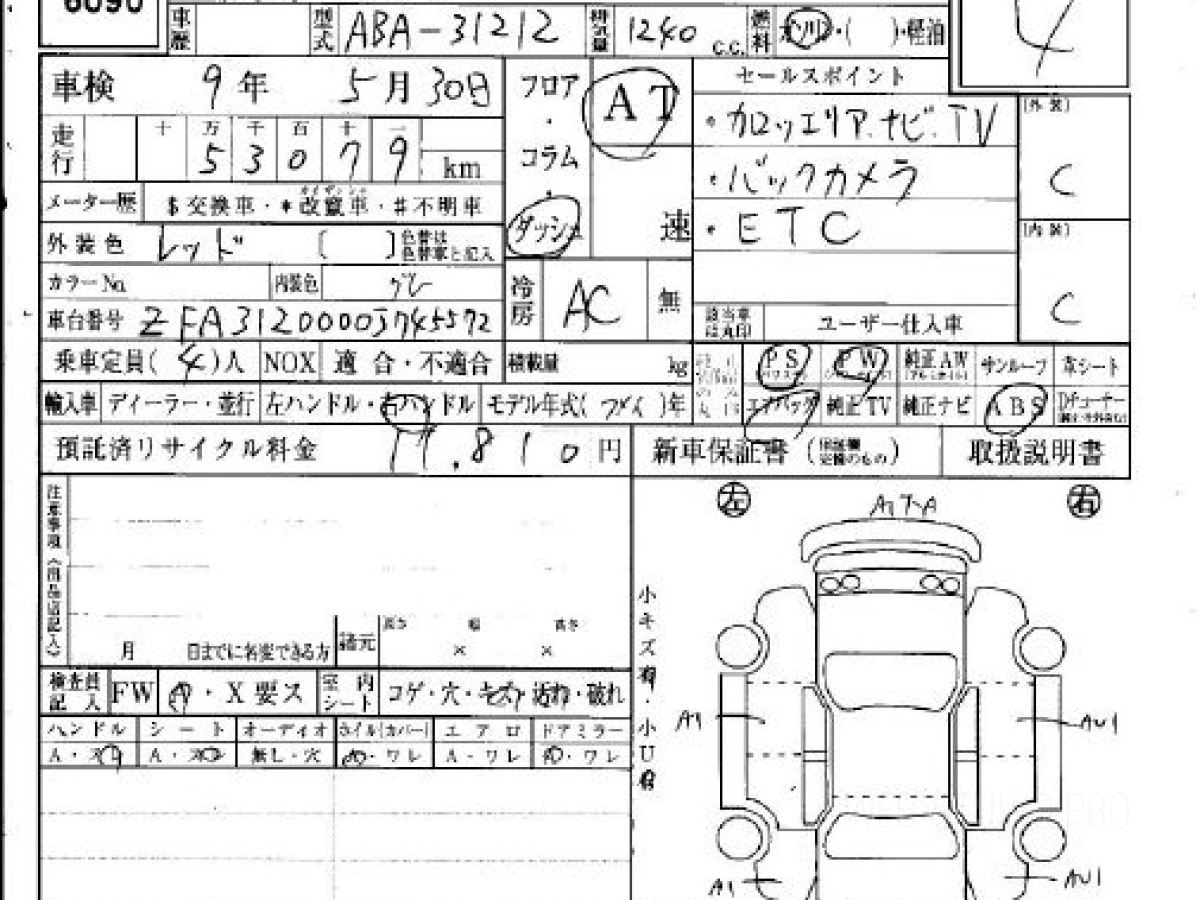 6090
車歴 型式 ABA-31212 排気量 1240 c.c. 燃料 ガソリン・( )・軽油 4
車検 9年 5月 30日 フロア・コラム・ダッシュ AT 速 セールスポイント
・カロッエリア.ナビ.TV
・バックカメラ
・ETC
[外装] C
[内装] C
走行 十 万 千 百 十 一
5 3 0 7 9 km
メーター歴 $交換車・*改竄車・#不明車
外装色 レッド [ ] 色替は色替車と記入
カラーNo. 内装色 グレ
冷房 AC 無
車台番号 ZFA31200003745572
該当車は丸印 ユーザー仕入車
乗車定員( 4 )人 NOX 適合・不適合 積載量 kg
PS PW 純正AW サンルーフ 革シート
輸入車 ディーラー・並行 左ハンドル・右ハンドル モデル年式( )年
エアバッグ 純正TV 純正ナビ ABS Dチューナー
預託済リサイクル料金 11.810円 新車保証書 取扱説明書
注意事項
月 日までに名変できる方 諸元 長さ × 幅 × 高さ
検査員記入 FW A・X要ス 室内シート コゲ・穴・キズ・汚れ・破れ
ハンドル シート オーディオ ホイル(カバー) エアロ ドアミラー
A・スレ A・スレ 無し・穴 A・ワレ A・ワレ A・ワレ
左 右
小キズ有・小U有
A1 AU1
A1 AU1